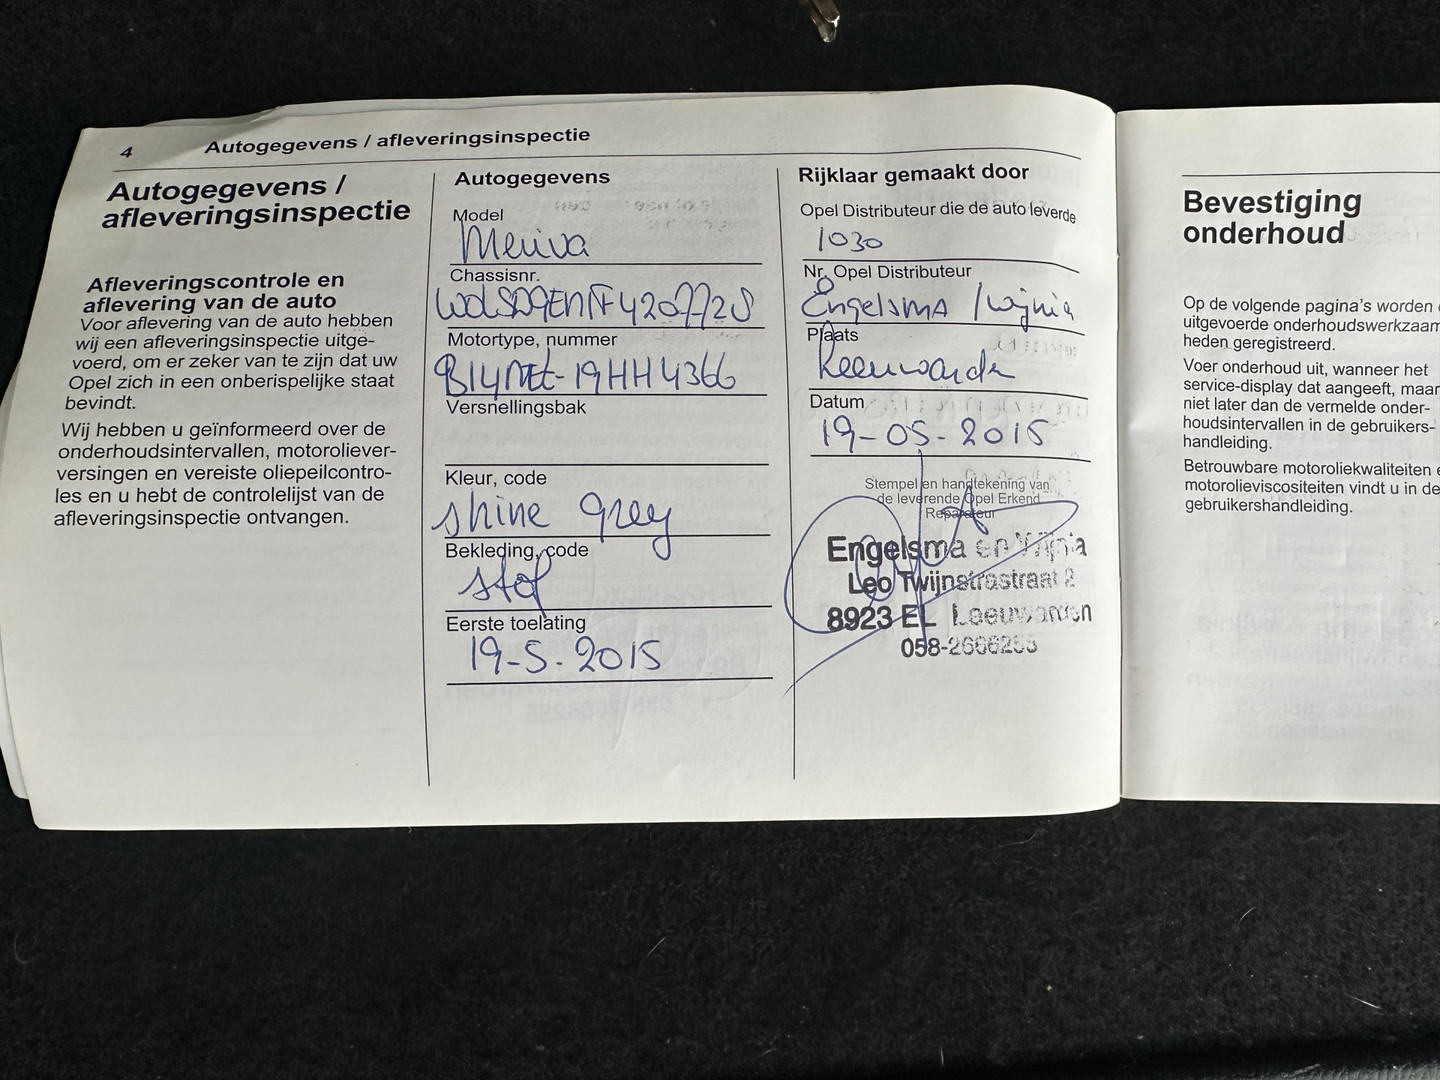 4 Autogegevens / afleveringsinspectie
Autogegevens /
afleveringsinspectie
Afleveringscontrole en
aflevering van de auto
Voor aflevering van de auto hebben
wij een afleveringsinspectie uitge-
voerd, om er zeker van te zijn dat uw
Opel zich in een onberispelijke staat
bevindt.
Wij hebben u geïnformeerd over de
onderhoudsintervallen, motoroliever-
versingen en vereiste oliepeilcontro-
les en u hebt de controlelijst van de
afleveringsinspectie ontvangen.
Autogegevens
Model
Meriva
Chassisnr.
Motortype, nummer
Versnellingsbak
Kleur, code
shine grey
Bekleding, code
stof
Eerste toelating
19-5-2015
Rijklaar gemaakt door
Opel Distributeur die de auto leverde
1030
Nr. Opel Distributeur
Engelsma / Wijnia
Plaats
Leeuwarden
Datum
19-05-2015
Stempel en handtekening van
de leverende Opel Erkend
Reparateur
Engelsma en Wijnia
Leo Twijnstrastraat 2
8923 EL Leeuwarden
Bevestiging
onderhoud
Op de volgende pagina's worden
uitgevoerde onderhoudswerkzaam
heden geregistreerd.
Voer onderhoud uit, wanneer het
service-display dat aangeeft, maar
niet later dan de vermelde onder-
houdsintervallen in de gebruikers-
handleiding.
Betrouwbare motoroliekwaliteiten
motorolieviscositeiten vindt u in de
gebruikershandleiding.